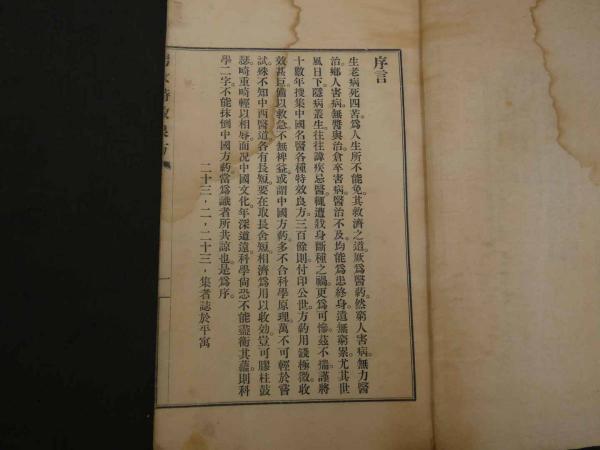 序言
生老病死四苦。爲人生所不能免。其救濟之道。厥爲醫葯。然窮人害病。無力醫
治。鄉人害病。無醫與治。倉卒害病。醫治不及。均能爲患終身。遺無窮累。尤其世
風日下。隱病叢生。往往諱疾忌醫。輒遭戕身斷種之禍。更爲可慘。茲不揣謹將
十數年搜集中國名醫各種特效良方。三百餘則。付印公世。方葯用錢極微。收
效甚巨。備以救急。不無裨益。或謂中國方葯。多不合科學原理。萬不可輕於嘗
試。殊不知中西醫道。各有長短。要在取長舍短。相濟爲用。以收効。豈可膠柱鼓
瑟。畸重畸輕。以相辱。而况中國文化。年深道遠。科學尙恐不能盡衡其蘊。則科
學二字。不能抹倒中國方葯。當爲識者所共諒也。是爲序。
二十三，二，二十三，集者誌於平寓
方
一